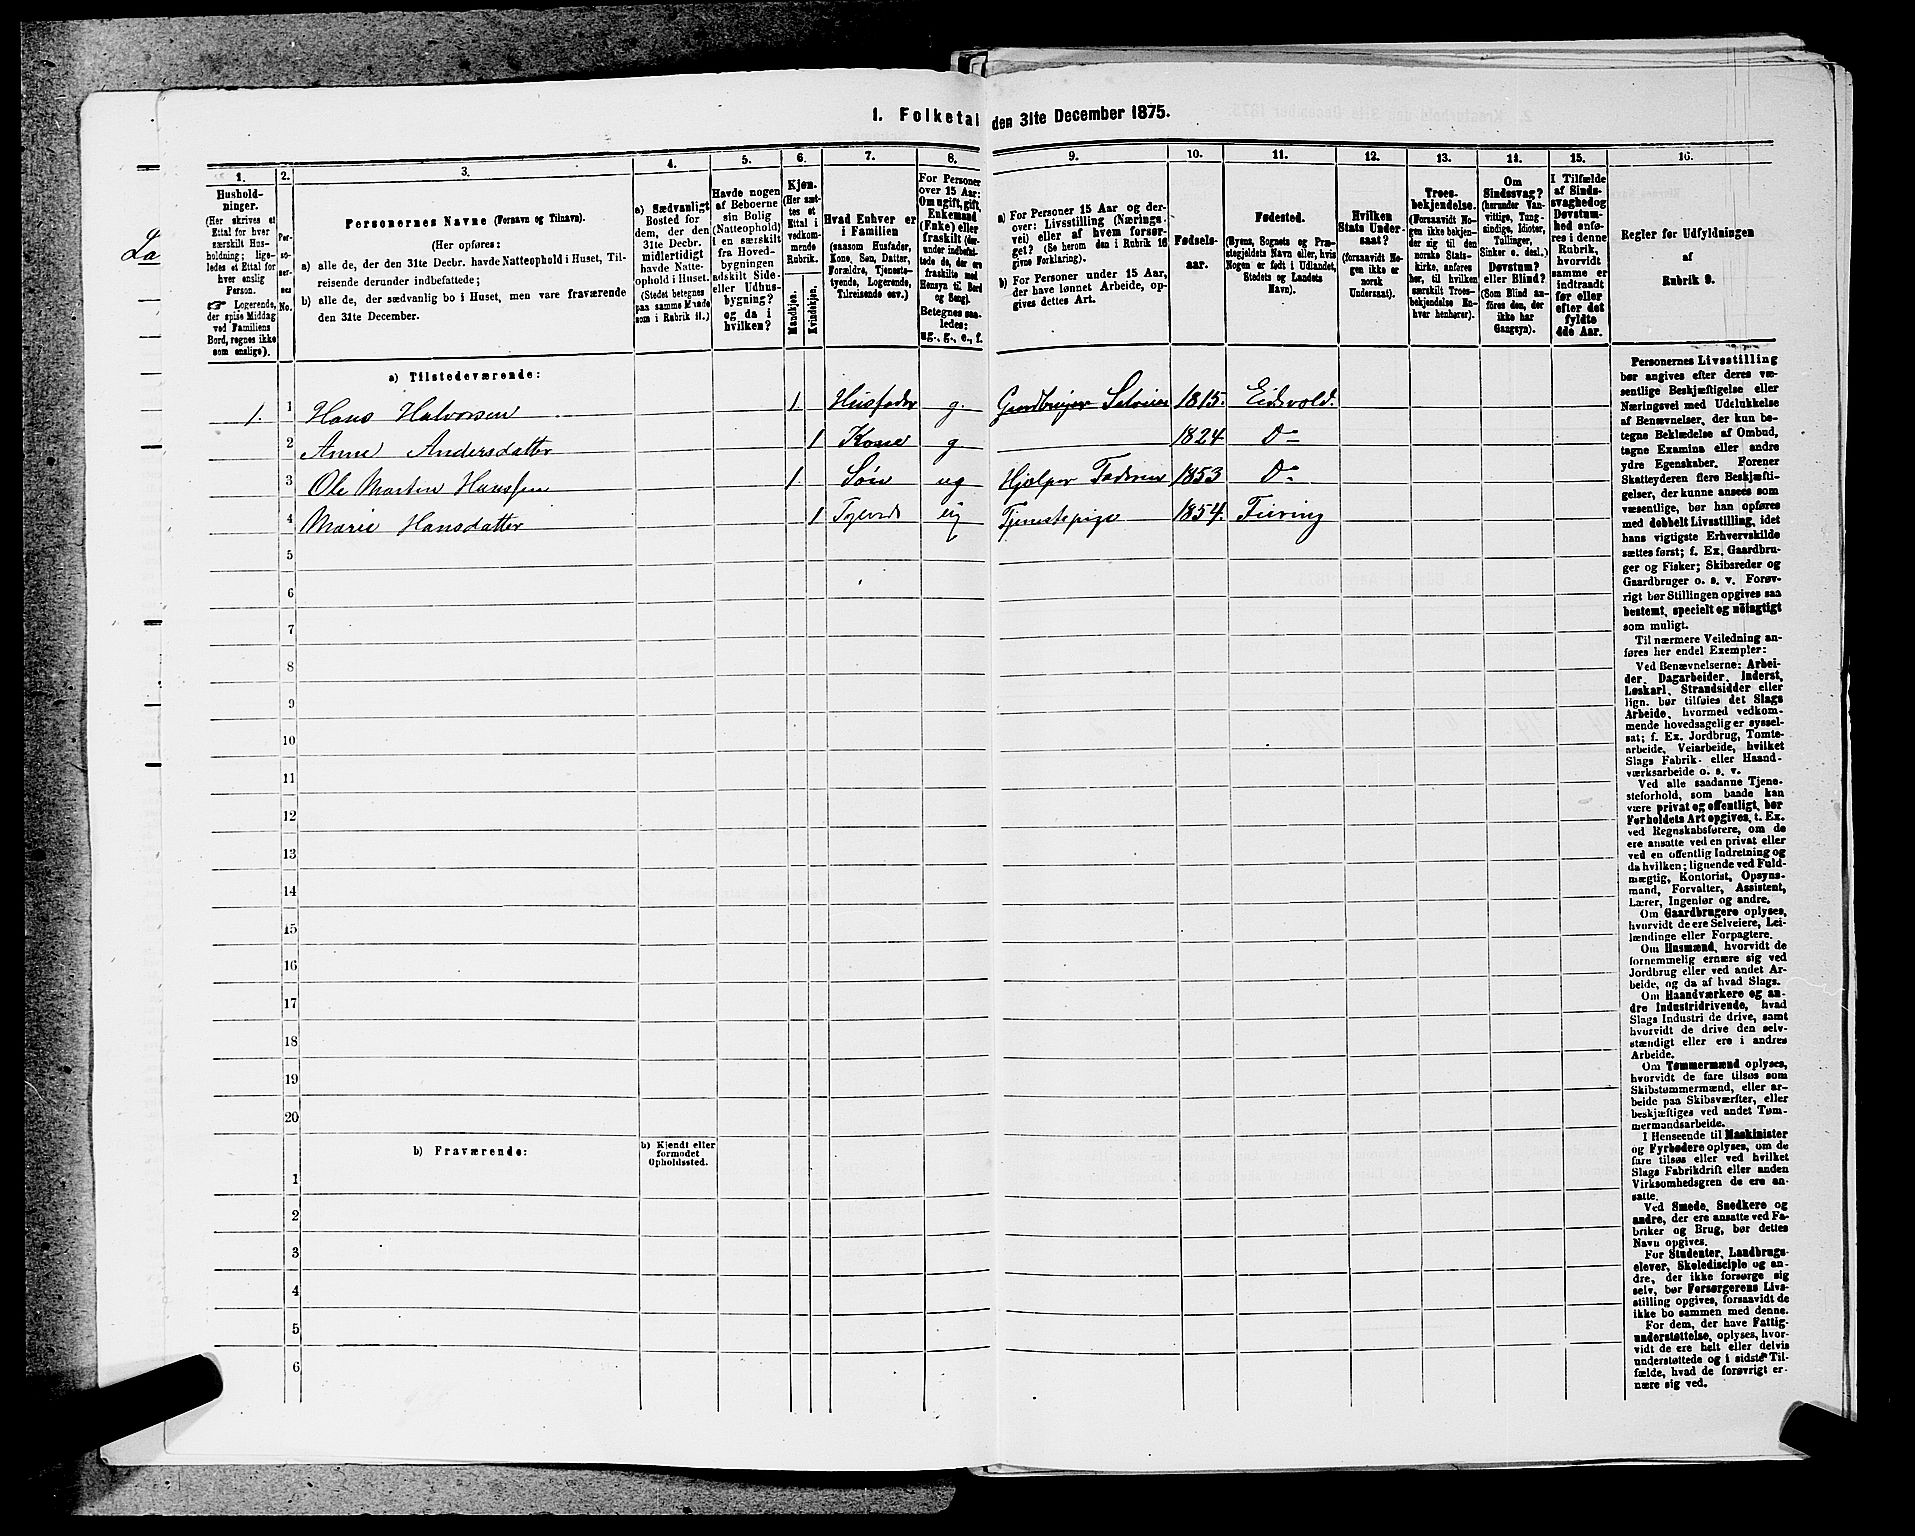 1. Folketal den 31te December 1875.
La
1.
Hushold-
ninger.
(Her skrives et
Ettal for hver
særskilt Hus-
holdning; lige-
ledes et Ettal for
hver enslig
Person.
☞ Logerende,
der spise Middag
ved Familiens
Bord, regnes ikke
som enslige).
2.
Per-
so-
ner-
nes
No.
3.
Personernes Navne (Fornavn og Tilnavn).
(Her opføres:
a) alle de, der den 31te Decbr. havde Natteophold i Huset, Til-
reisende derunder indbefattede;
b) alle de, der sædvanlig bo i Huset, men vare fraværende
den 31te December.
4.
a) Sædvanligt
Bosted for
dem, der den
31te Decbr.
midlertidigt
havde Natte-
ophold i Huset.
(Stedet betegnes
paa samme Maade
som i Rubrik 11.)
5.
Havde nogen
af Beboerne
sin Bolig
(Natteophold)
i en særskilt
fra Hoved-
bygningen
adskilt Side-
eller Udhus-
bygning?
og da i
hvilken?
6.
Kjøn.
(Her sæt-
tes et
Ettal i
vedkom-
mende
Rubrik.
Mandkjøn.
Kvindekjøn.
7.
Hvad Enhver er
i Familien
(saasom Husfader,
Kone, Søn, Datter,
Forældre, Tjeneste-
tyende, Logerende,
Tilreisende osv.)
8.
For Personer
over 15 Aar:
Om ugift, gift,
Enkemand
(Enke) eller
fraskilt (der-
under indbefat-
tede de, der ere
fraskilte med
Hensyn til Bord
og Seng).
Betegnes saa-
ledes:
ug., g., e., f.
9.
a) For Personer 15 Aar og der-
over: Livsstilling (Nærings-
vei) eller af hvem forsør-
get? (Se herom den i Rubrik 16
givne Forklaring).
b) For Personer under 15 Aar,
der have lønnet Arbeide, op-
gives dettes Art.
10.
Fødsels-
aar.
11.
Fødested.
(Byens, Sognets og Præ-
stegjeldets Navn eller, hvis
Nogen er født i Udlandet,
Stedets og Landets
Navn).
12.
Hvilken
Stats Under-
saat?
(forsaavidt No-
gen ikke er
norsk
Undersaat).
13.
Troes-
bekjendelse.
(Forsaavidt No-
gen ikke bekjen-
der sig til den
norske Stats-
kirke, anføres
her, til hvilken
særskilt Troes-
bekjendelse En-
hver henhører).
14.
Om
Sindssvag?
(herunder Van-
vittige, Tung-
sindige, Idioter,
Tullinger,
Sinker o. desl.)
Døvstum?
eller Blind?
(Som Blind an-
føres den, der
ikke har
Gangsyn).
15.
I Tilfælde
af Sinds-
svaghed og
Døvstum-
hed anfø-
res i denne
Rubrik,
hvorvidt
samme er
indtraadt
før eller
efter det
fyldte
4de Aar.
16.
Regler for Udfyldningen
af
Rubrik 9.
a) Tilstedeværende:
1. 1 Hans Halvorsen 1. Husfader g. Gaardbruger Selveier 1815. Eidsvold.
2 Anne Andersdatter 1 Kone g 1824 Do
3 Ole Martin Hanssen 1. Søn ug Hjælper Faderen 1853 Do
4 Marie Hansdatter 1 ug Tjenestepige 1854. Feiring
5
6
7
8
9
10
11
12
13
14
15
16
17
18
19
20
b) Fraværende:
b) Kjendt eller
formodet
Opholdssted.
1
2
3
4
5
6
Personernes Livsstilling
bør angives efter deres væ-
sentlige Beskjæftigelse eller
Næringsvei med Udelukkelse
af Benævnelser, der kun be-
tegne Beklædelse af Ombud,
tagne Examina eller andre
ydre Egenskaber. Forener
Skatteyderen flere Beskjæfti-
gelser, der kunne ansees som
væsentlige, bør han opføres
med dobbelt Livsstilling, idet
hans vigtigste Erhvervskilde
sættes først; f. Ex. Gaardbru-
ger og Fisker; Skibsreder og
Gaardbruger o. s. v. Forøv-
rigt bør Stillingen opgives saa
bestemt, specielt og nöiagtigt
som muligt.
Til nærmere Veiledning an-
føres her endel Exempler:
Ved Benævnelserne: Arbei-
der, Dagarbeider, Inderst,
Løskarl, Strandsidder eller
lign. bør tilføies det Slags
Arbeide, hvormed vedkom-
mende hovedsagelig er syssel-
sat; f. Ex. Jordbrug, Tomte-
arbeide, Veiarbeide, hvilket
Slags Fabrik- eller Haand-
værksarbeide o. s. v.
Ved alle saadanne Tjene-
steforhold, som baade kan
være privat og offentligt, bør
Forholdets Art opgives, t. Ex.
ved Regnskabsførere, om de
ere ansatte ved en privat eller
ved en offentlig Indretning og
da hvilken; lignende ved Fuld-
mægtig, Kontorist, Opsyns-
mand, Forvalter, Assistent,
Lærer, Ingeniør og andre.
Om Gaardbrugere oplyses,
hvorvidt de ere Selveiere, Lei-
lændinge eller Forpagtere.
Om Husmænd, hvorvidt de
fornemmelig ernære sig ved
Jordbrug eller ved andet Ar-
beide, og da af hvad Slags.
Om Haandværkere og an-
dre Industridrivende, hvad
Slags Industri de drive, samt
hvorvidt de drive den selv-
stændigt eller ere i andres
Arbeide.
Om Tømmermænd oplyses,
hvorvidt de fare tilsøs som
Skibstømmermænd, eller ar-
beide paa Skibsværfter, eller
beskjæftiges ved andet Tøm-
mermandsarbeide.
I Henseende til Maskinister
og Fyrbødere oplyses, om de
fare tilsøs eller ved hvilket
Slags Fabrikdrift eller anden
Virksomhedsgren de ere an-
satte.
Ved Smede, Snedkere og
andre, der ere ansatte ved Fa-
briker og Brug, bør dettes
Navn opgives.
For Studenter, Landbrugs-
elever, Skoledisciple og an-
dre, der ikke forsørge sig
selv, bør Forsørgerens Livs-
stilling opgives, forsaavidt de
ikke bo sammen med denne.
For dem, der have Fattig-
understøttelse, oplyses, hvor-
vidt de ere helt eller delvis
understøttede og i sidste Til-
fælde, hvad de forøvrigt er-
nære sig ved.